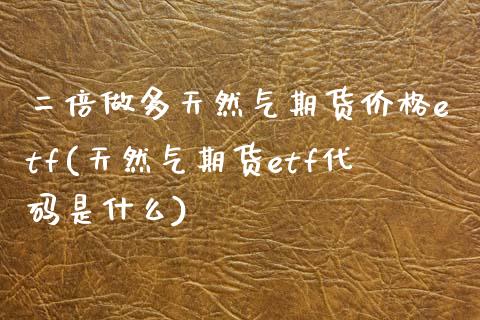 二倍做多天然气期货价格e
tf(天然气期货etf代
码是什么)